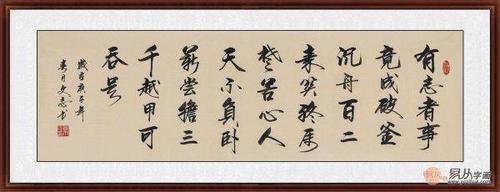 有志者事
竟成破釜
沉舟百二
秦关终属
楚苦心人
天不负卧
薪尝膽三
千越甲可
吞吴
庚子年
春月
易从字画